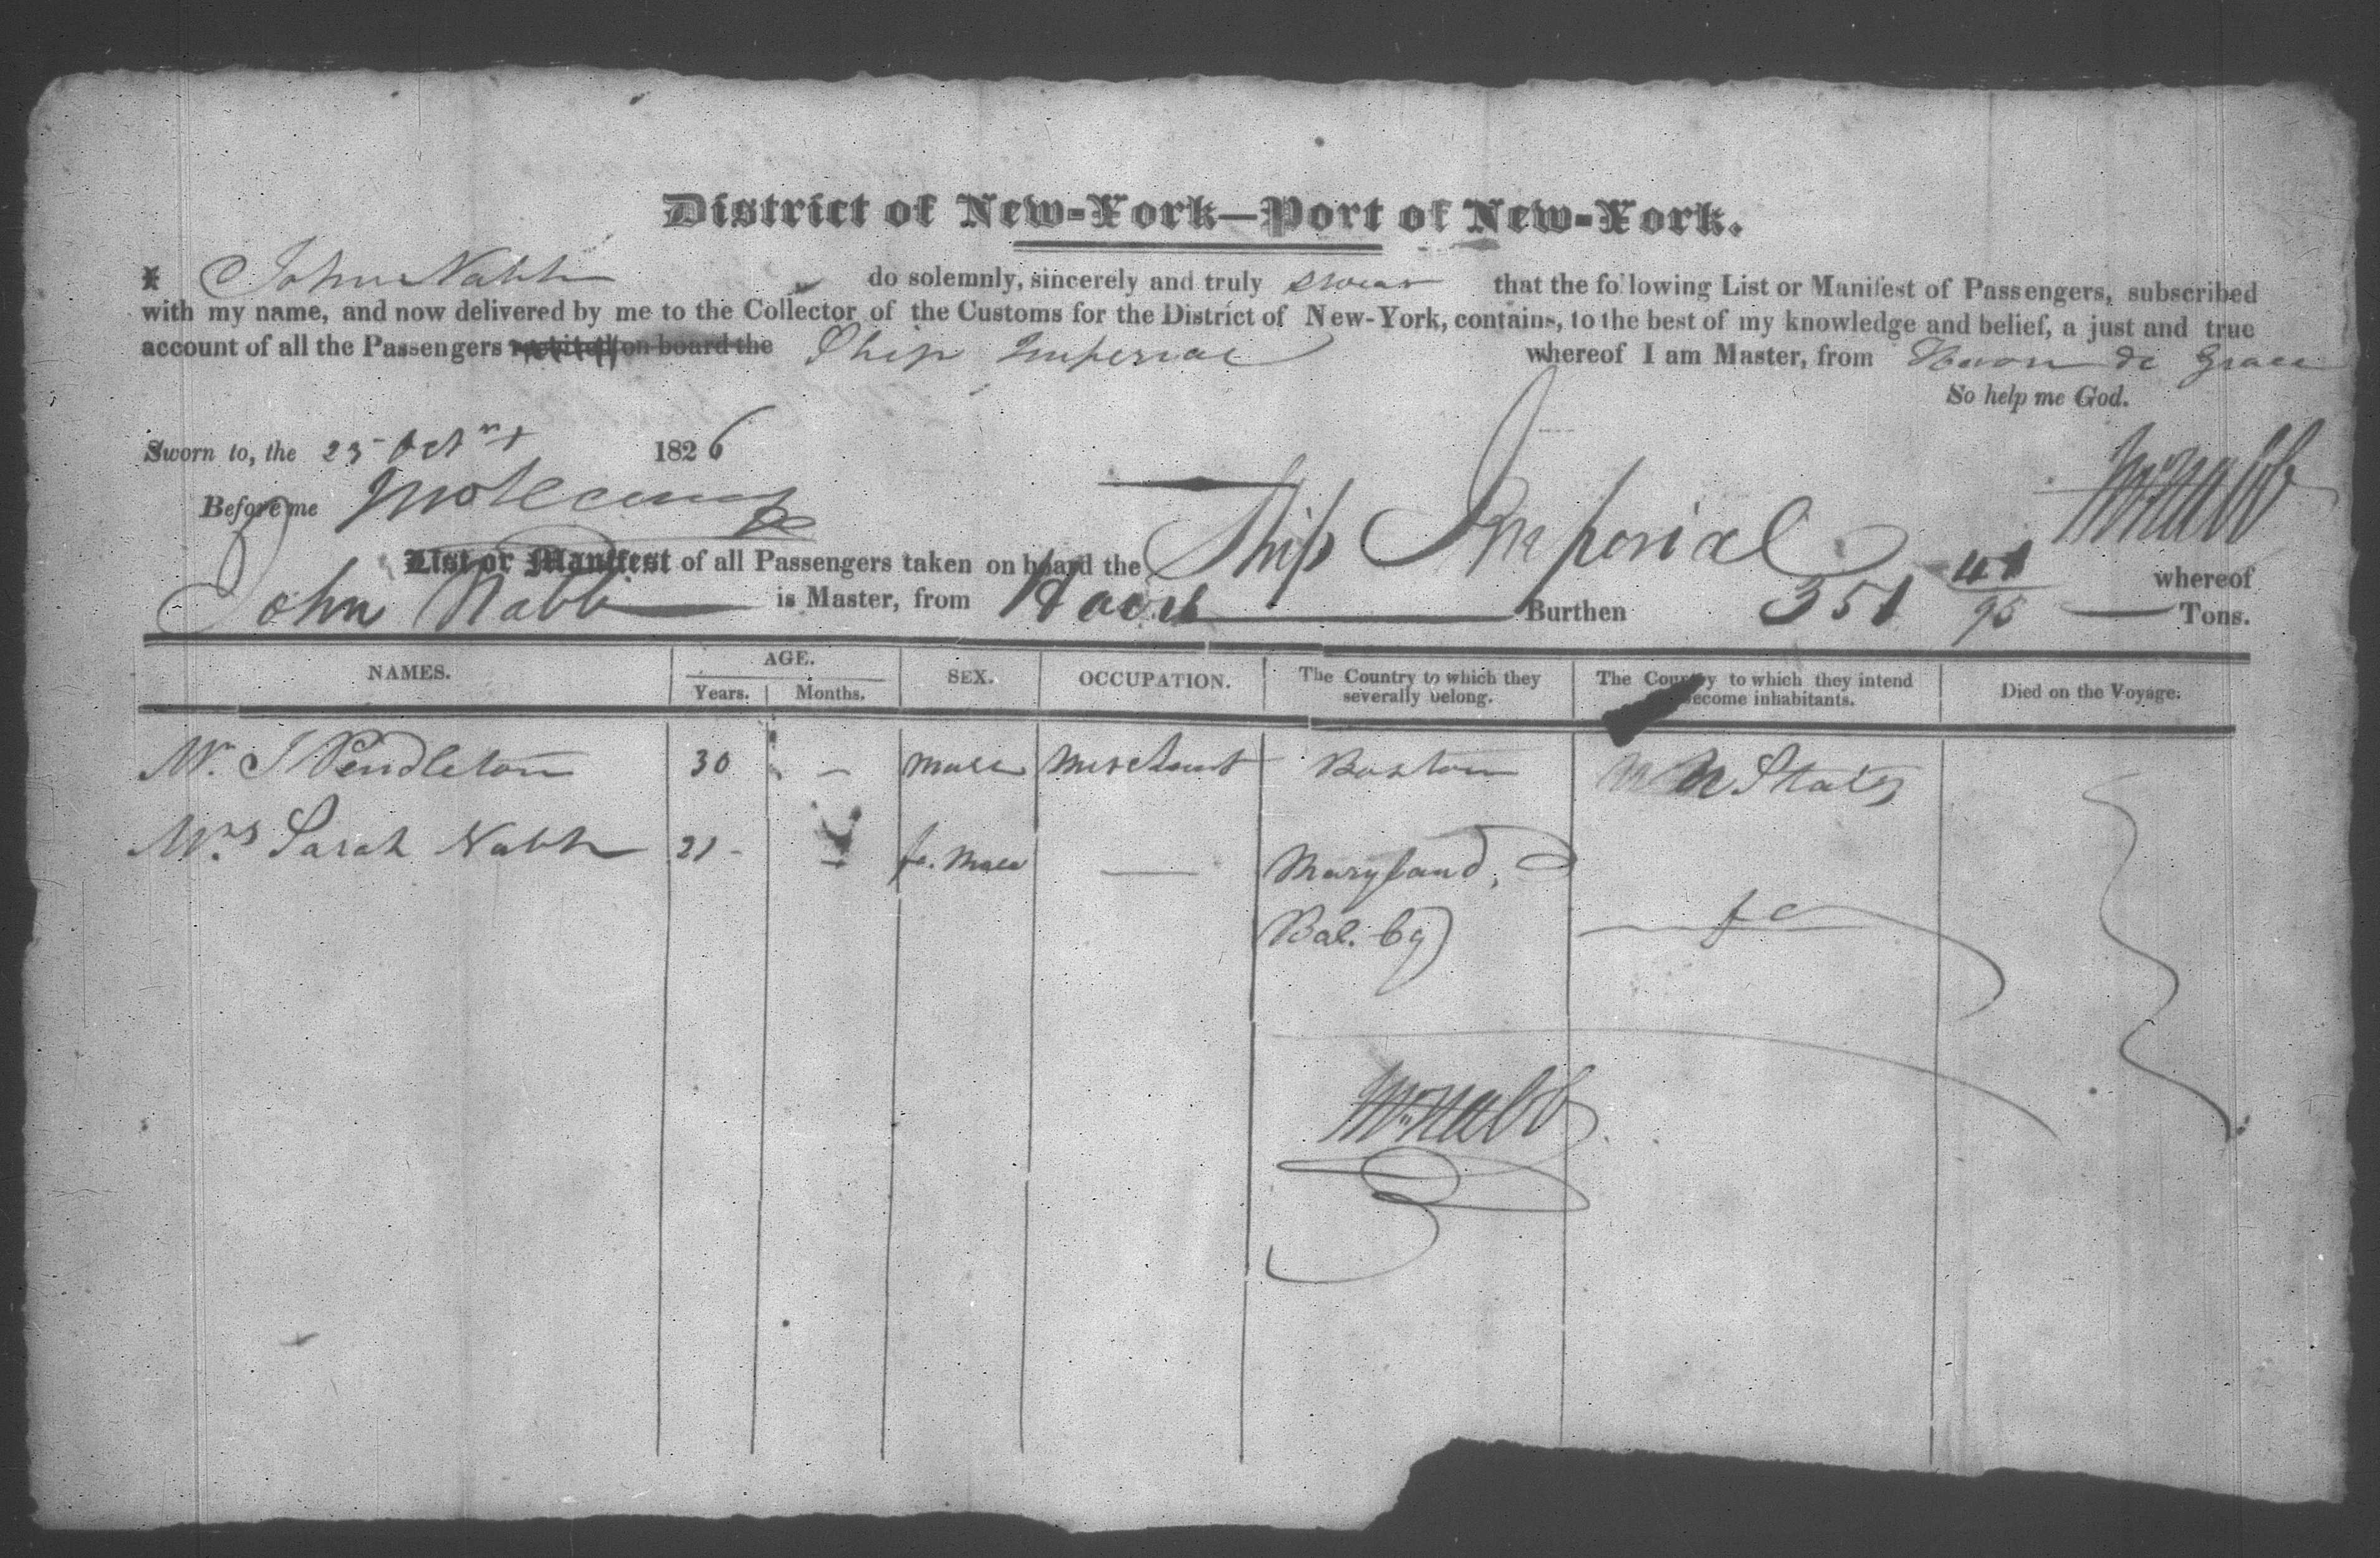 District of New-York—Port of New-York.
I John Nabb do solemnly, sincerely and truly swear that the following List or Manifest of Passengers, subscribed
with my name, and now delivered by me to the Collector of the Customs for the District of New-York, contains, to the best of my knowledge and belief, a just and true
account of all the Passengers on board the Ship Imperial whereof I am Master, from Havre de Grace
So help me God.
Sworn to, the 23 1826
Before me
List or Manifest of all Passengers taken on board the Ship Imperial whereof
John Nabb is Master, from Havre Burthen 351 41/95 Tons.
NAMES. AGE. SEX. OCCUPATION. The Country to which they severally belong. The Country to which they intend become inhabitants. Died on the Voyage.
Years. Months.
Mr. J Pendleton 30 - male merchant Boston States
Mrs Sarah Nabb 21 - fe. male — Maryland,
Bal.